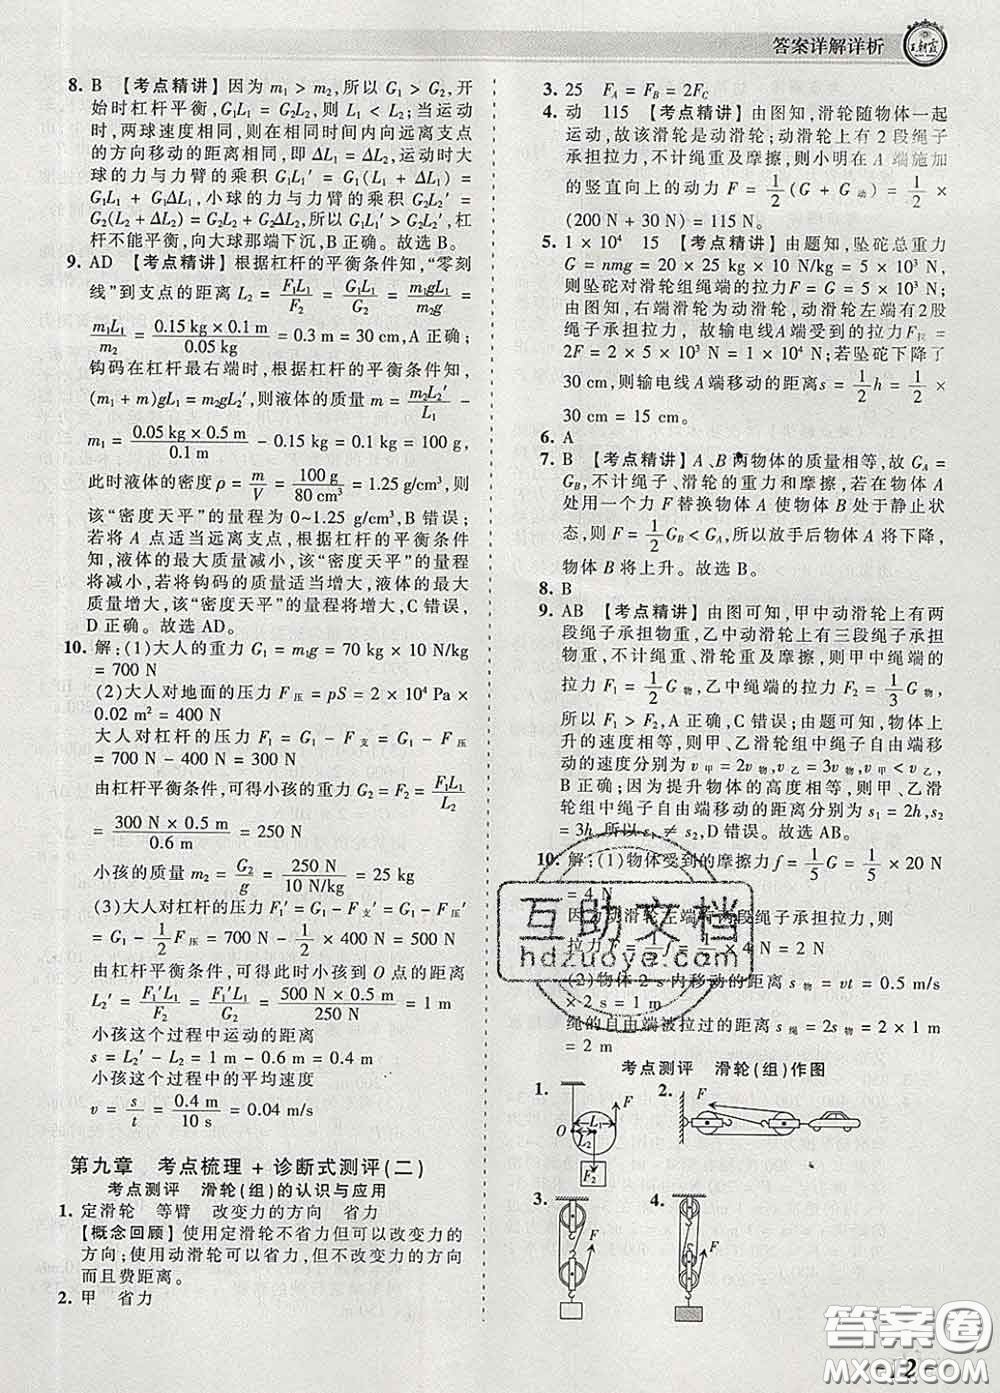 答案详解详析
王朝霞
8. B 【考点精讲】因为 m₁ > m₂,所以 G₁ > G₂,开
始时杠杆平衡,G₁L₁ = G₂L₂,则 L₁ < L₂;当运动
时,两球速度相同,则在相同时间内向远离支点
的方向移动的距离相同,即 ΔL₁ = ΔL₂,运动时大
球的力与力臂的乘积 G₁L₁′ = G₁(L₁ + ΔL₁) =
G₁L₁ + G₁ΔL₁,小球的力与力臂的乘积 G₂L₂′ =
G₂(L₂ + ΔL₂) = G₂L₂ + G₂ΔL₂,所以 G₁L₁′ > G₂L₂′,杠
杆不能平衡,向大球那端下沉,B 正确。故选 B。
9. AD 【考点精讲】根据杠杆的平衡条件知,“零刻
线”到支点的距离 L₂ = F₁L₁/F₂ = G₁L₁/G₂ = m₁gL₁/m₂g =
m₁L₁/m₂ = 0.15 kg × 0.1 m/0.05 kg = 0.3 m = 30 cm,A 正确;
钩码在杠杆最右端时,根据杠杆的平衡条件知,
(m₁ + m)gL₁ = m₂gL₂′,则液体的质量 m = m₂L₂′/L₁ −
m₁ = 0.05 kg × 0.5 m/0.1 m − 0.15 kg = 0.1 kg = 100 g,
此时液体的密度 ρ = m/V = 100 g/80 cm³ = 1.25 g/cm³,则
该“密度天平”的量程为 0~1.25 g/cm³,B 错误;
若将 A 点适当远离支点,根据杠杆的平衡条件
知,液体的最大质量减小,该“密度天平”的量程
将减小,若将钩码的质量适当增大,液体的最大
质量增大,该“密度天平”的量程将增大,C 错误,
D 正确。故选 AD。
10. 解:(1)大人的重力 G₁ = m₁g = 70 kg × 10 N/kg
= 700 N
(2)大人对地面的压力 F压 = pS = 2 × 10⁴ Pa ×
0.02 m² = 400 N
大人对杠杆的压力 F₁ = G₁ − F支 = G₁ − F压
= 700 N − 400 N = 300 N
由杠杆平衡条件,可得小孩的重力 G₂ = F₂ = F₁L₁/L₂
= 300 N × 0.5 m/0.6 m = 250 N
小孩的质量 m₂ = G₂/g = 250 N/10 N/kg = 25 kg
(3)大人对杠杆的压力 F₁′ = G₁ − F支′ = G₁ − F压′
= G₁ − 1/2 F压 = 700 N − 1/2 × 400 N = 500 N
由杠杆平衡条件,可得此时小孩到 O 点的距离
L₂′ = F₁′L₁/F₂ = F₁′L₁/G₂ = 500 N × 0.5 m/250 N = 1 m
小孩这个过程中运动的距离
s = L₂′ − L₂ = 1 m − 0.6 m = 0.4 m
小孩这个过程中的平均速度
v = s/t = 0.4 m/10 s = 0.04 m/s
第九章 考点梳理 + 诊断式测评(二)
考点测评 滑轮(组)的认识与应用
1. 定滑轮 等臂 改变力的方向 省力
【概念回顾】使用定滑轮不省力但可以改变力的
方向;使用动滑轮可以省力,但不改变力的方向
而且费距离。
2. 甲 省力
3. 25 F_A = F_B = 2F_C
4. 动 115 【考点精讲】由图知,滑轮随物体一起
运动,故该滑轮是动滑轮;动滑轮上有 2 段绳子
承担拉力,不计绳重及摩擦,则小明在 A 端施加
的竖直向上的动力 F = 1/2 (G + G动) = 1/2 ×
(200 N + 30 N) = 115 N。
5. 1 × 10⁴ 15 【考点精讲】由题知,坠砣总重力
G = nmg = 20 × 25 kg × 10 N/kg = 5 × 10³ N,
则坠砣对滑轮组绳端的拉力 F = G = 5 × 10³ N;
由图知,右端滑轮为动滑轮,动滑轮左端有2股
绳子承担拉力,故输电线A端受到的拉力F拉 =
2F = 2 × 5 × 10³ N = 1 × 10⁴ N;若坠砣下降了
30 cm,则输电线 A 端移动的距离 s = 1/2 h = 1/2 ×
30 cm = 15 cm。
6. A
7. B 【考点精讲】A、B 两物体的质量相等,故 G_A =
G_B,不计绳子、滑轮的重力和摩擦,若在A物体
处用一个力 F 替换物体 A 使物体 B 处于静止状
态,则 F = 1/2 G_B < G_A,所以放手后物体 A 将下降,
物体 B 将上升。故选 B。
8. B
9. AB 【考点精讲】由图可知,甲中动滑轮上有两
段绳子承担物重,乙中动滑轮上有三段绳子承担
物重,不计绳重、滑轮重及摩擦,则甲中绳端的
拉力 F₁ = 1/2 G物,乙中绳端的拉力 F₂ = 1/3 G物,
所以 F₁ > F₂,A 正确,C 错误;由题可知,物体上
升的速度相等,则甲、乙滑轮组中绳子自由端移
动的速度分别为 v甲 = 2v物,v乙 = 3v物,v甲 < v乙,
B 正确;因为提升物体的高度相等,则甲、乙滑
轮组中绳子自由端移动的距离分别为 s₁ = 2h,s₂
= 3h,所以 s₁ ≠ s₂,D 错误。故选 AB。
10. 解:(1)物体受到的摩擦力 f = 1/5 G = 1/5 × 20 N
= 4 N
因为动滑轮左端有两段绳子承担拉力,则
拉力 F = 1/2 f = 1/2 × 4 N = 2 N
(2)物体 2 s 内移动的距离 s物 = vt = 0.5 m/s
× 2 s = 1 m
绳的自由端被拉过的距离 s绳 = 2s物 = 2 × 1 m
= 2 m
考点测评 滑轮(组)作图
1. O L₁ L₂ F F₂
2. F
3. F
4. F
互助文档
hdzuoye.com
答案圈
MXQE.COM
2